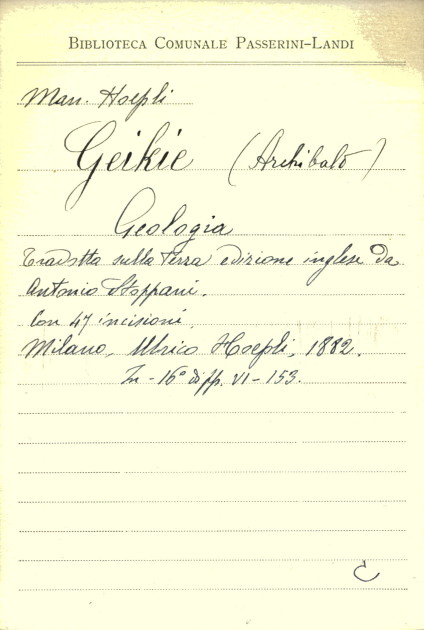 BIBLIOTECA COMUNALE PASSERINI-LANDI
Man. Hoepli
Geikie (Archibald)
Geologia
Tradotta sulla terza edizione inglese da
Antonio Stoppani.
Con 47 incisioni.
Milano, Ulrico Hoepli, 1882.
In-16° di pp. VI-153.
C